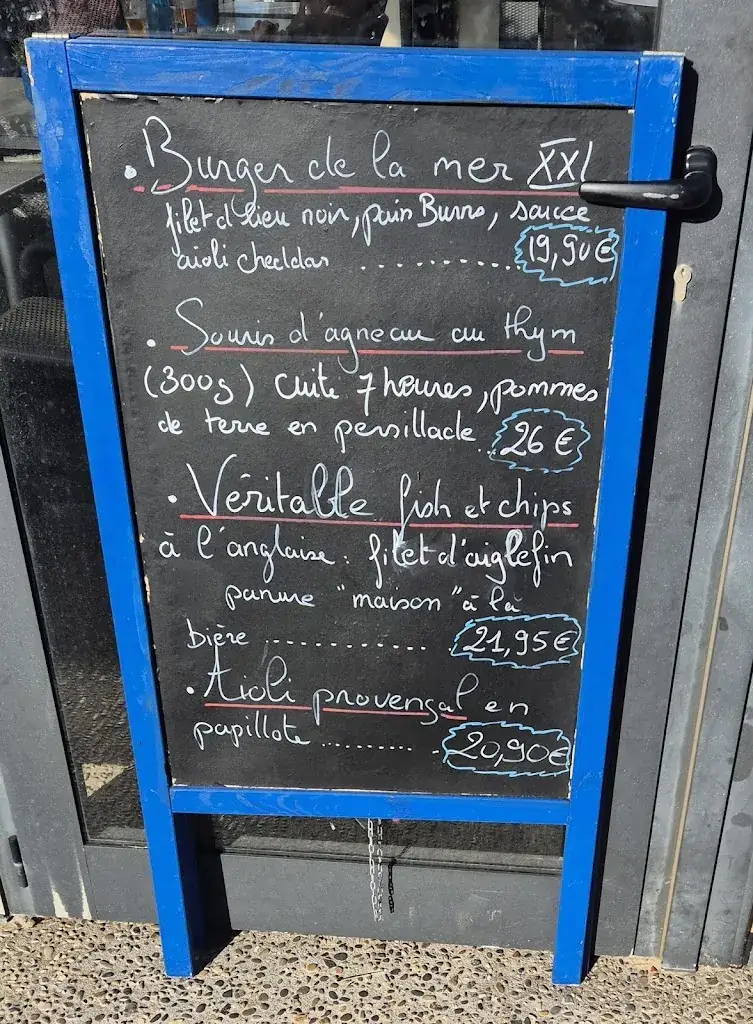 . Burger de la mer XXL
filet d'lieu noir, pain Burns, sauce
aioli cheddar ............ 19,90€
. Souris d'agneau au thym
(300g) cuite 7 heures, pommes
de terre en persillade .. 26 €
. Véritable fish et chips
à l'anglaise : filet d'aiglefin
panure "maison" à la
bière ............... 21,95€
. Aïoli provençal en
papillote .......... 20,90€